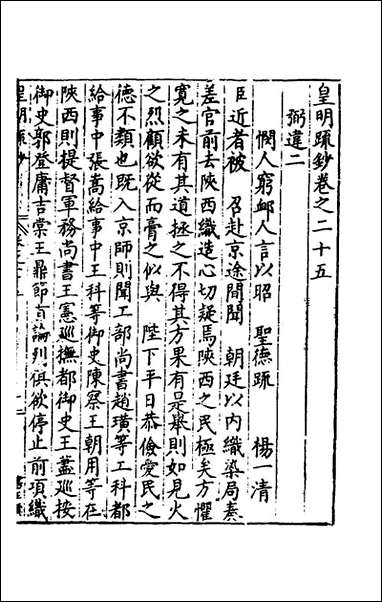 皇明疏鈔卷之二十五
弼違二
憫人窮䘏人言以昭　聖德疏　楊一清
臣近者被　召赴京途間聞　朝廷以内織染局奏
差官前去陝西織造心切疑焉陝西之民極矣方懼
寬之未有其道拯之不得其方果有是舉則如見火
之烈顧欲從而膏之似與　陛下平日恭儉愛民之
德不類也既入京師則聞工部尚書趙璜等工科都
給事中張嵩給事中王科等御史陳察王朝用等在
陝西則提督軍務尚書王憲巡撫都御史王藎巡按
御史郭登庸吉棠王鼎節貢論列俱欲停止前項織
皇明疏鈔